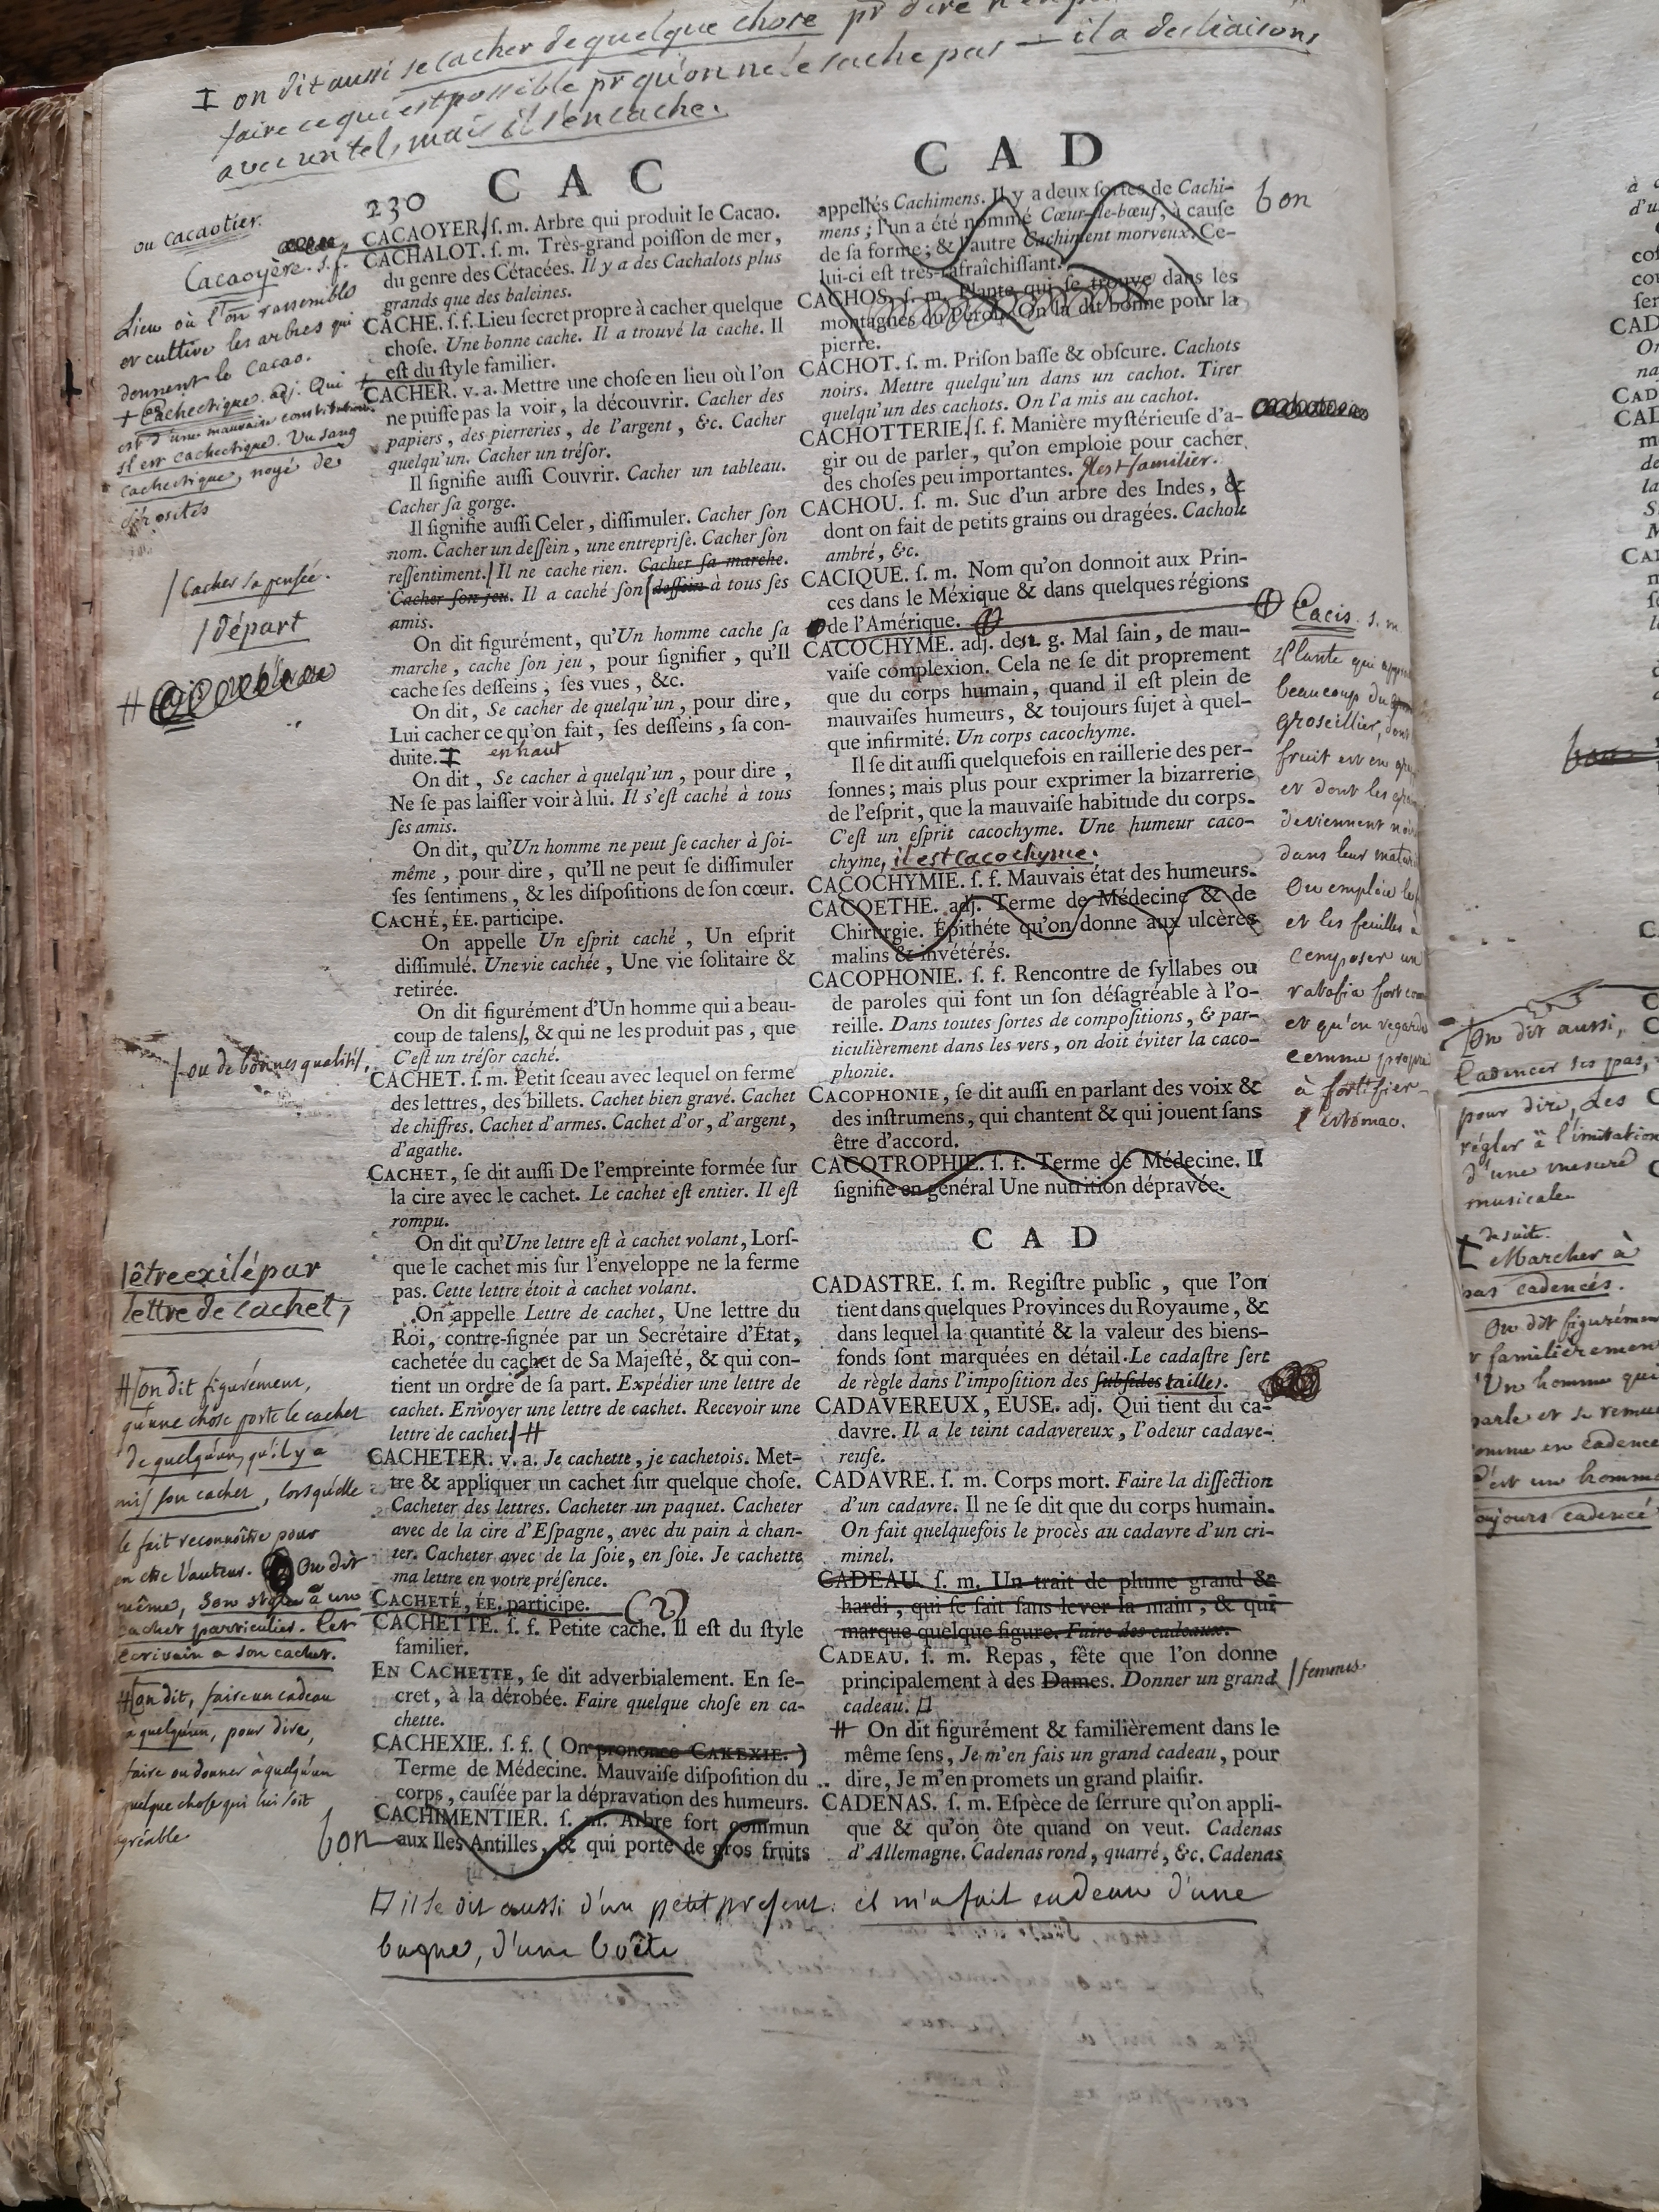 I on dit aussi se cacher de quelque chose pr dire
faire ce qui est possible pr qu'on ne le sache pas — il a des liaisons
avec un tel, mais il s'en cache.
230 CAC
ou cacaotier.
Cacaoyère. s. f.
Lieu où l'on rassemble
et cultive les arbres qui
donnent le Cacao.
+ Cachectique. adj. Qui
est d'une mauvaise constitution.
Il est cachectique. Un sang
cachectique, noyé de
sérosités
/ Cacher sa pensée.
/ départ
/ ou de bonnes qualités,
/ être exilé par
lettre de cachet,
# [on dit figurément,
qu'une chose porte le cachet
de quelqu'un, qu'il y a
mis son cachet, lorsqu'elle
le fait reconnoître pour
en être l'auteur. On dit
même, Son style a un
cachet particulier. Cet
écrivain a son cachet.
# [on dit, faire un cadeau
a quelqu'un, pour dire,
faire ou donner à quelqu'un
quelque chose qui lui soit
agréable
CACAOYER / ſ. m. Arbre qui produit le Cacao.
CACHALOT. ſ. m. Très-grand poiſſon de mer,
du genre des Cétacées. Il y a des Cachalots plus
grands que des baleines.
CACHE. ſ. f. Lieu ſecret propre à cacher quelque
choſe. Une bonne cache. Il a trouvé la cache. Il
eſt du ſtyle familier.
+ CACHER. v. a. Mettre une choſe en lieu où l'on
ne puiſſe pas la voir, la découvrir. Cacher des
papiers, des pierreries, de l'argent, &c. Cacher
quelqu'un. Cacher un tréſor.
Il ſignifie auſſi Couvrir. Cacher un tableau.
Cacher ſa gorge.
Il ſignifie auſſi Celer, diſſimuler. Cacher ſon
nom. Cacher un deſſein, une entrepriſe. Cacher ſon
reſſentiment. / Il ne cache rien. Cacher ſa marche.
Cacher ſon jeu. Il a caché ſon / deſſein à tous ſes
amis.
On dit figurément, qu'Un homme cache ſa
marche, cache ſon jeu, pour ſignifier, qu'Il
cache ſes deſſeins, ſes vues, &c.
On dit, Se cacher de quelqu'un, pour dire,
Lui cacher ce qu'on fait, ſes deſſeins, ſa con-
duite. I en haut
On dit, Se cacher à quelqu'un, pour dire,
Ne ſe pas laiſſer voir à lui. Il s'eſt caché à tous
ſes amis.
On dit, qu'Un homme ne peut ſe cacher à ſoi-
même, pour dire, qu'Il ne peut ſe diſſimuler
ſes ſentimens, & les diſpoſitions de ſon cœur.
CACHÉ, ÉE. participe.
On appelle Un eſprit caché, Un eſprit
diſſimulé. Une vie cachée, Une vie ſolitaire &
retirée.
On dit figurément d'Un homme qui a beau-
coup de talens /, & qui ne les produit pas, que
C'eſt un tréſor caché.
CACHET. ſ. m. Petit ſceau avec lequel on ferme
des lettres, des billets. Cachet bien gravé. Cachet
de chiffres. Cachet d'armes. Cachet d'or, d'argent,
d'agathe.
CACHET, ſe dit auſſi De l'empreinte formée ſur
la cire avec le cachet. Le cachet eſt entier. Il eſt
rompu.
On dit qu'Une lettre eſt à cachet volant, Lorſ-
que le cachet mis ſur l'enveloppe ne la ferme
pas. Cette lettre étoit à cachet volant.
On appelle Lettre de cachet, Une lettre du
Roi, contre-ſignée par un Secrétaire d'État,
cachetée du cachet de Sa Majeſté, & qui con-
tient un ordre de ſa part. Expédier une lettre de
cachet. Envoyer une lettre de cachet. Recevoir une
lettre de cachet. / #
CACHETER. v. a. Je cachette, je cachetois. Met-
tre & appliquer un cachet ſur quelque choſe.
Cacheter des lettres. Cacheter un paquet. Cacheter
avec de la cire d'Eſpagne, avec du pain à chan-
ter. Cacheter avec de la ſoie, en ſoie. Je cachette
ma lettre en votre préſence.
CACHETÉ, ÉE. participe.
CACHETTE. ſ. f. Petite cache. Il eſt du ſtyle
familier.
EN CACHETTE, ſe dit adverbialement. En ſe-
cret, à la dérobée. Faire quelque choſe en ca-
chette.
CACHEXIE. ſ. f. (On prononce CAKEXIE.)
Terme de Médecine. Mauvaiſe diſpoſition du
corps, cauſée par la dépravation des humeurs.
CACHIMENTIER. ſ. m. Arbre fort commun
bon aux Iles Antilles, & qui porte de gros fruits
CAD
appellés Cachimens. Il y a deux ſortes de Cachi- bon
mens; l'un a été nommé Cœur-de-bœuf, à cauſe
de ſa forme; & l'autre Cachiment morveux. Ce-
lui-ci eſt très-rafraîchiſſant.
CACHOS. ſ. m. Plante qui ſe trouve dans les
montagnes du Pérou. On la dit bonne pour la
pierre.
CACHOT. ſ. m. Priſon baſſe & obſcure. Cachots
noirs. Mettre quelqu'un dans un cachot. Tirer
quelqu'un des cachots. On l'a mis au cachot.
CACHOTTERIE / ſ. f. Manière myſtérieuſe d'a-
gir ou de parler, qu'on emploie pour cacher
des choſes peu importantes. Il est familier.
CACHOU. ſ. m. Suc d'un arbre des Indes, &
dont on fait de petits grains ou dragées. Cachou
ambré, &c.
CACIQUE. ſ. m. Nom qu'on donnoit aux Prin-
ces dans le Méxique & dans quelques régions
de l'Amérique.
CACOCHYME. adj. de t. g. Mal ſain, de mau-
vaiſe complexion. Cela ne ſe dit proprement
que du corps humain, quand il eſt plein de
mauvaiſes humeurs, & toujours ſujet à quel-
que infirmité. Un corps cacochyme.
Il ſe dit auſſi quelquefois en raillerie des per-
ſonnes; mais plus pour exprimer la bizarrerie
de l'eſprit, que la mauvaiſe habitude du corps.
C'eſt un eſprit cacochyme. Une humeur caco-
chyme, il est cacochyme.
CACOCHYMIE. ſ. f. Mauvais état des humeurs.
CACOETHE. adj. Terme de Médecine & de
Chirurgie. Épithéte qu'on donne aux ulcères
malins & invétérés.
CACOPHONIE. ſ. f. Rencontre de ſyllabes ou
de paroles qui font un ſon déſagréable à l'o-
reille. Dans toutes ſortes de compoſitions, & par-
ticulièrement dans les vers, on doit éviter la caco-
phonie.
CACOPHONIE, ſe dit auſſi en parlant des voix &
des inſtrumens, qui chantent & qui jouent ſans
être d'accord.
CACOTROPHIE. ſ. f. Terme de Médecine. Il
ſignifie en général Une nutrition dépravée.
CAD
CADASTRE. ſ. m. Regiſtre public, que l'on
tient dans quelques Provinces du Royaume, &
dans lequel la quantité & la valeur des biens-
fonds ſont marquées en détail. Le cadaſtre ſert
de règle dans l'impoſition des ſubſides tailles.
CADAVEREUX, EUSE. adj. Qui tient du ca-
davre. Il a le teint cadavereux, l'odeur cadave-
reuſe.
CADAVRE. ſ. m. Corps mort. Faire la diſſection
d'un cadavre. Il ne ſe dit que du corps humain.
On fait quelquefois le procès au cadavre d'un cri-
minel.
CADEAU. ſ. m. Un trait de plume grand &
hardi, qui ſe fait ſans lever la main, & qui
marque quelque figure. Faire des cadeaux.
CADEAU. ſ. m. Repas, fête que l'on donne
principalement à des Dames. Donner un grand / femmes.
cadeau.
# On dit figurément & familièrement dans le
même ſens, Je m'en fais un grand cadeau, pour
dire, Je m'en promets un grand plaiſir.
CADENAS. ſ. m. Eſpèce de ſerrure qu'on appli-
que & qu'on ôte quand on veut. Cadenas
d'Allemagne. Cadenas rond, quarré, &c. Cadenas
Cacis. s. m.
Plante qui
beaucoup du
groseillier, dont
fruit est en
et dont les
deviennent
dans leur
On emploie
et les feuilles à
composer un
ratafia fort
et qu'on regarde
comme propre
à fortifier
l'estomac.
il se dit aussi d'un petit present. il m'a fait cadeau d'une
bague, d'une boëte
[On dit aussi,
Cadencer ses pas,
pour dire, les
régler à l'imitation
d'une mesure
musicale
de suite.
[ Marcher à
pas cadencés.
On dit figurément
familièrement
Un homme qui
parle et se remue
comme en cadence
C'est un homme
toujours cadencé